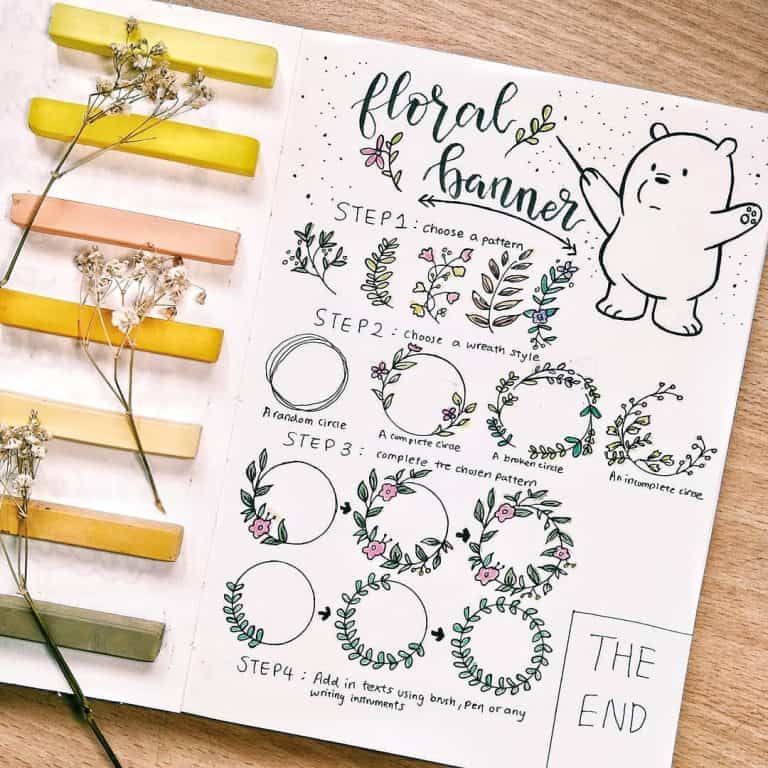 floral
banner
STEP 1 : Choose a pattern
STEP 2 : Choose a wreath style
A random circle
A complete circle
A broken circle
An incomplete circle
STEP 3 : complete the chosen pattern
STEP 4 : Add in texts using brush, pen or any
writing instruments
THE
END